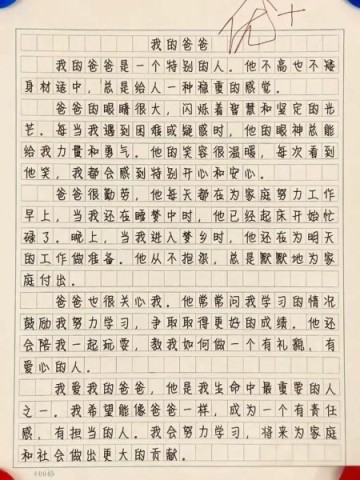 优+
我的爸爸
我的爸爸是一个特别的人。他不高也不矮
身材适中，总是给人一种稳重的感觉。
爸爸的眼睛很大，闪烁着智慧和坚定的光
芒。每当我遇到困难或疑惑时，他的眼神总能
给我力量和勇气。他的笑容很温暖，每次看到
他笑，我都会感到特别开心和安心。
爸爸很勤劳，他每天都在为家庭努力工作
早上，当我还在睡梦中时，他已经起床开始忙
碌了。晚上，当我进入梦乡时，他还在为明天
的工作做准备。他从不抱怨，总是默默地为家
庭付出。
爸爸也很关心我。他常常问我学习的情况
鼓励我努力学习，争取取得更好的成绩。他还
会陪我一起玩耍，教我如何做一个有礼貌，有
爱心的人。
我爱我的爸爸，他是我生命中最重要的人
之一。我希望能像爸爸一样，成为一个有责任
感，有担当的人。我会努力学习，将来为家庭
和社会做出更大的贡献。